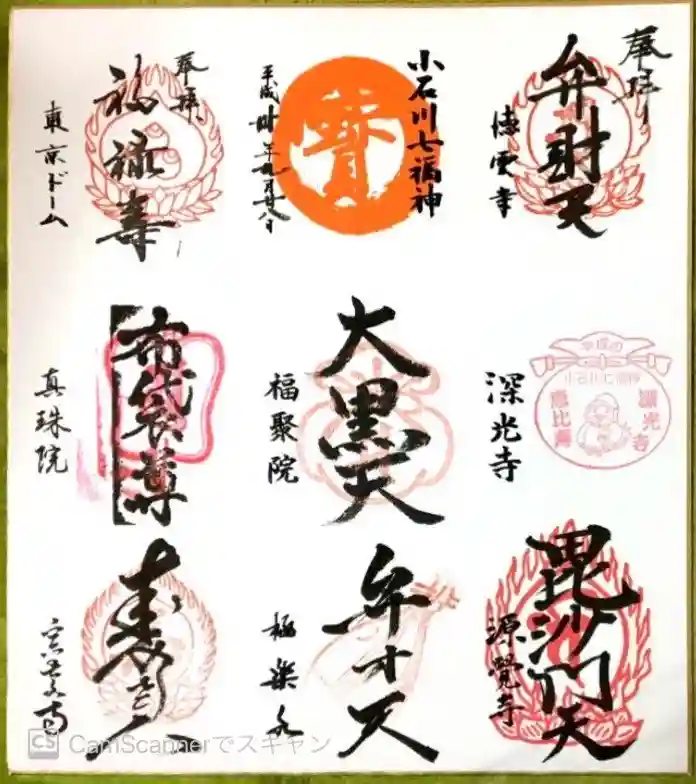 奉拝
弁財天
徳雲寺
小石川七福神
寳
平成卅年九月廿八日
奉拝
福禄寿
東京ドーム
小石川七福神
恵比寿
深光寺
深光寺
大黒天
福聚院
布袋尊
真珠院
毘沙門天
源覚寺
弁才天
極楽水
寿老人
宗慶寺
CS CamScannerでスキャン